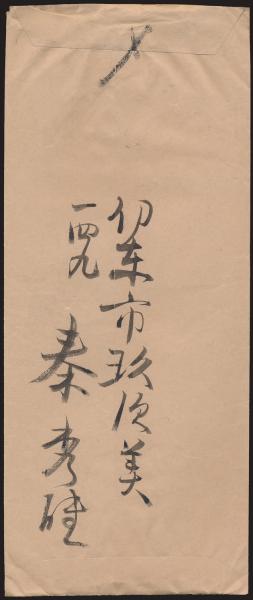 〆
伊東市玖須美
一四九
秦秀雄